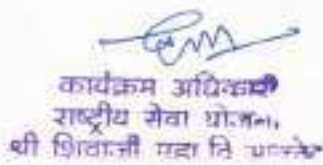 कार्यक्रम अधिकारी
राष्ट्रीय सेवा योजना,
श्री शिवाजी महा वि